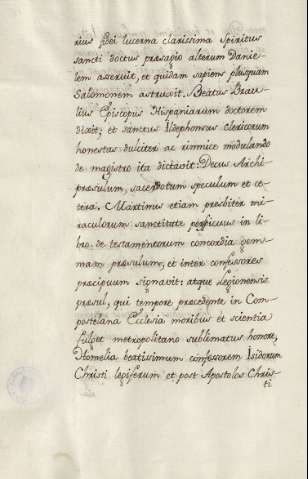 rius fidei lucerna clarissima Spiritus
sancti doctus præsagio alterum Danie-
lem asseruit, et quidam sapiens plusquam
Salomonem astruxit. Beatus Brau-
lius Episcopus Hispaniarum doctorem
dixit; et sanctus Ildephonsus clericorum
honestas dulciter ac rinmice modulando
de magistro ita dictavit. Decus Archi-
præsulum, sacerdotum speculum et ce-
tera. Maximus etiam presbiter mi-
raculorum sanctitate perspicuus in li-
bro de testamentorum concordia gem-
mam præsulum, et inter confessores
præcipuum signavit: atque Legionensis
præsul, qui tempore precedente in Com-
postelana Ecclesia moribus et scientia
fulget metropolitano sublimatus honore,
Homelia beatissimum confessorem Isidorum
Christi legiferum et post Apostolos Chris-
ti